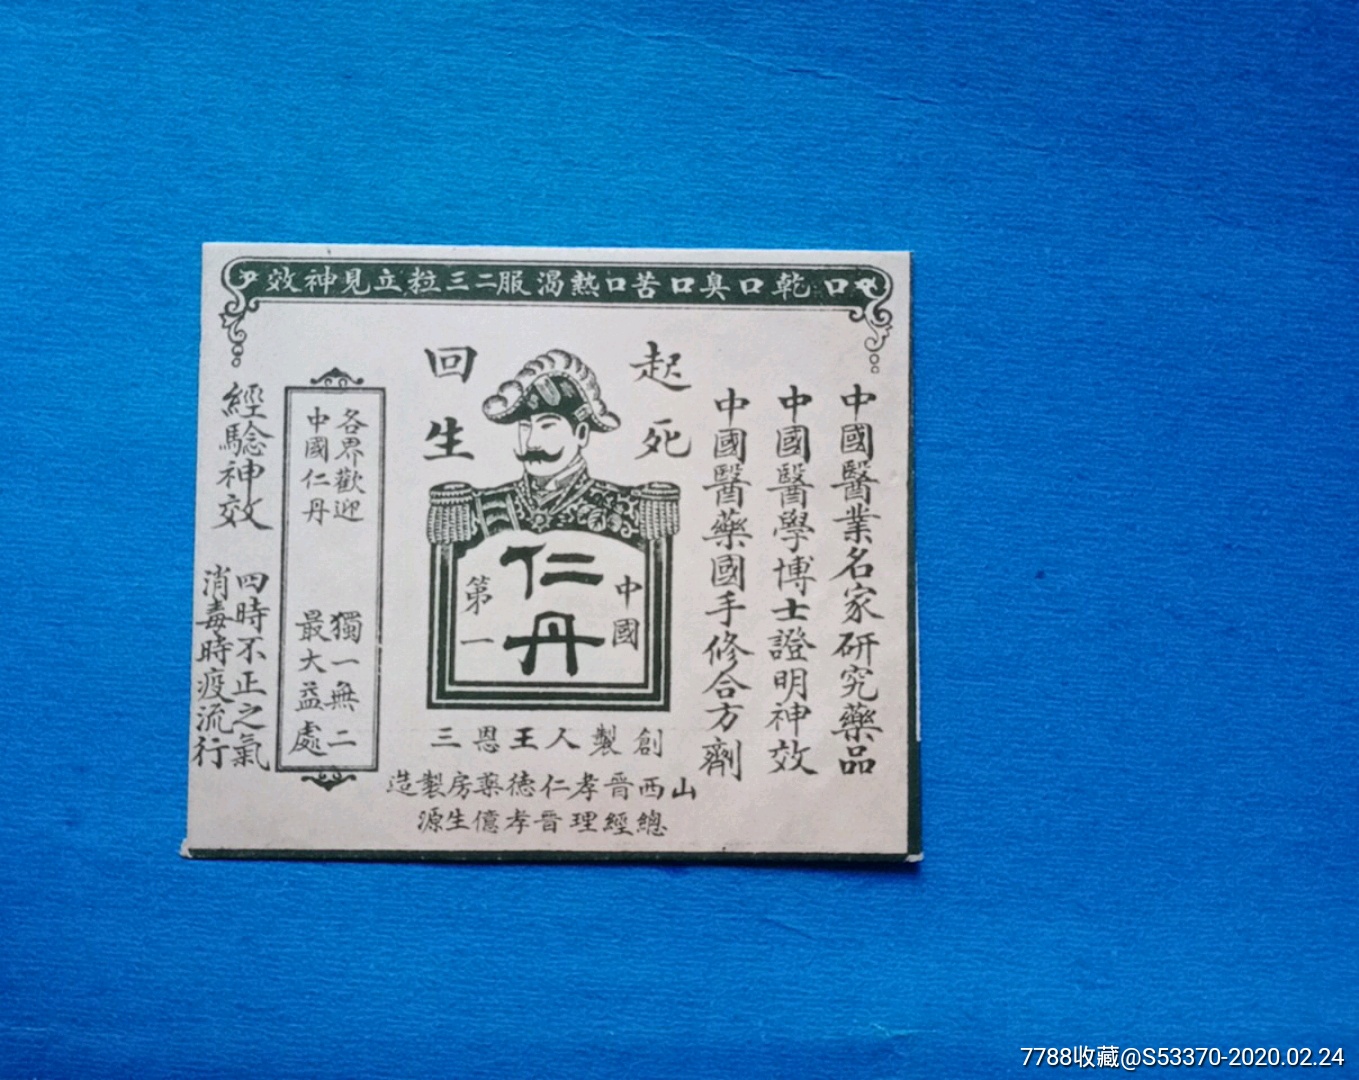 口乾口臭口苦口熱渴服二三粒立見神效
中國醫業名家研究藥品
中國醫學博士證明神效
中國醫藥國手修合方劑
起死
回生
中國
仁丹
第一
創製人王恩三
山西晉孝仁德藥房製造
總經理晉孝億生源
各界歡迎 獨一無二
中國仁丹 最大益處
經驗神效
四時不正之氣
消毒時疫流行
7788收藏@S53370-2020.02.24